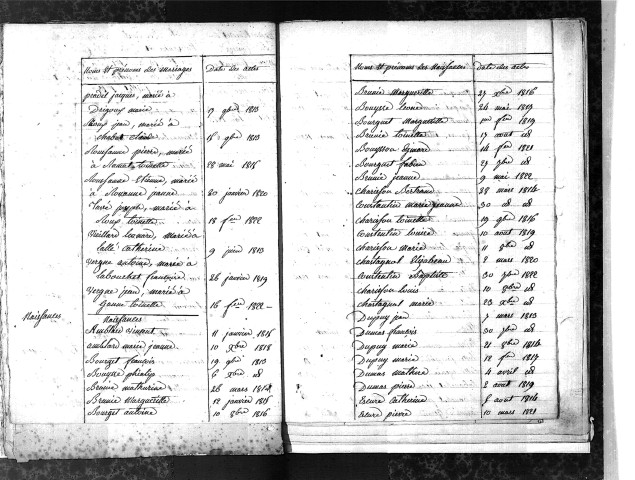 Noms et prénoms des Mariages Date des actes
pradel jacques, mariée à
Dregoux marie 17 9bre 1813
Roux jean, mariée à
chabut 15 9bre 1813
Roufsanne pierre, mariée
à Ramat toinette 28 mai 1815
Roufsanne Etienne, mariée
à Roxanne jeanne 20 janvier 1820
joseph, mariée à
Roux toinette 18 fer 1822
Vieillard Leonard, mariée à
Lallé Catherine 9 juin 1813
Yergne antoine, mariée à
Labouchet françoise 26 janvier 1819
Yergne jean, mariée à
toinette 16 fer 1822
Naissances Naissances
Amblard vincent 11 janvier 1815
amblard marie jeanne 10 xbre 1818
Bourzet françois 19 9bre 1813
Bouysse 6 xbre id
Brunie mathurine 26 mars 1814
Brunie Marguerite 12 janvier 1815
Bourzet antoine 10 8bre 1816
Noms et prénoms des Naissances Date des actes
Brunie Marguerite 27 xbre 1816
Bouysse 24 mai 1819
Bourguet Marguerite 1er fer 1819
Brunie toinette 17 aout id
Bouyssou 14 fer 1821
Bourguet 29 9bre id
Brunie jeanne 9 mai 1822
Charissou Bertrand 28 mars 1814
Courtentin marie jeanne 30 id id
Charissou toinette 19 9bre 1816
Courtentin Louise 10 aout 1819
Charissou marie 11 8bre id
Chartagnol Elizabeau 2 mars 1820
Courtentin Baptiste 30 7bre 1822
Charissou Louis 10 8bre id
Chartagnol marie 23 xbre id
Dupuy jean 7 mars 1813
Dumas françois 30 7bre id
Dupuy marie 21 8bre 1814
Dupuy marie 12 fer 1817
Dumas mathieu 4 avril id
Dumas pierre 2 aout 1819
Escure Catherine 8 aout 1814
Escure pierre 10 mars 1821